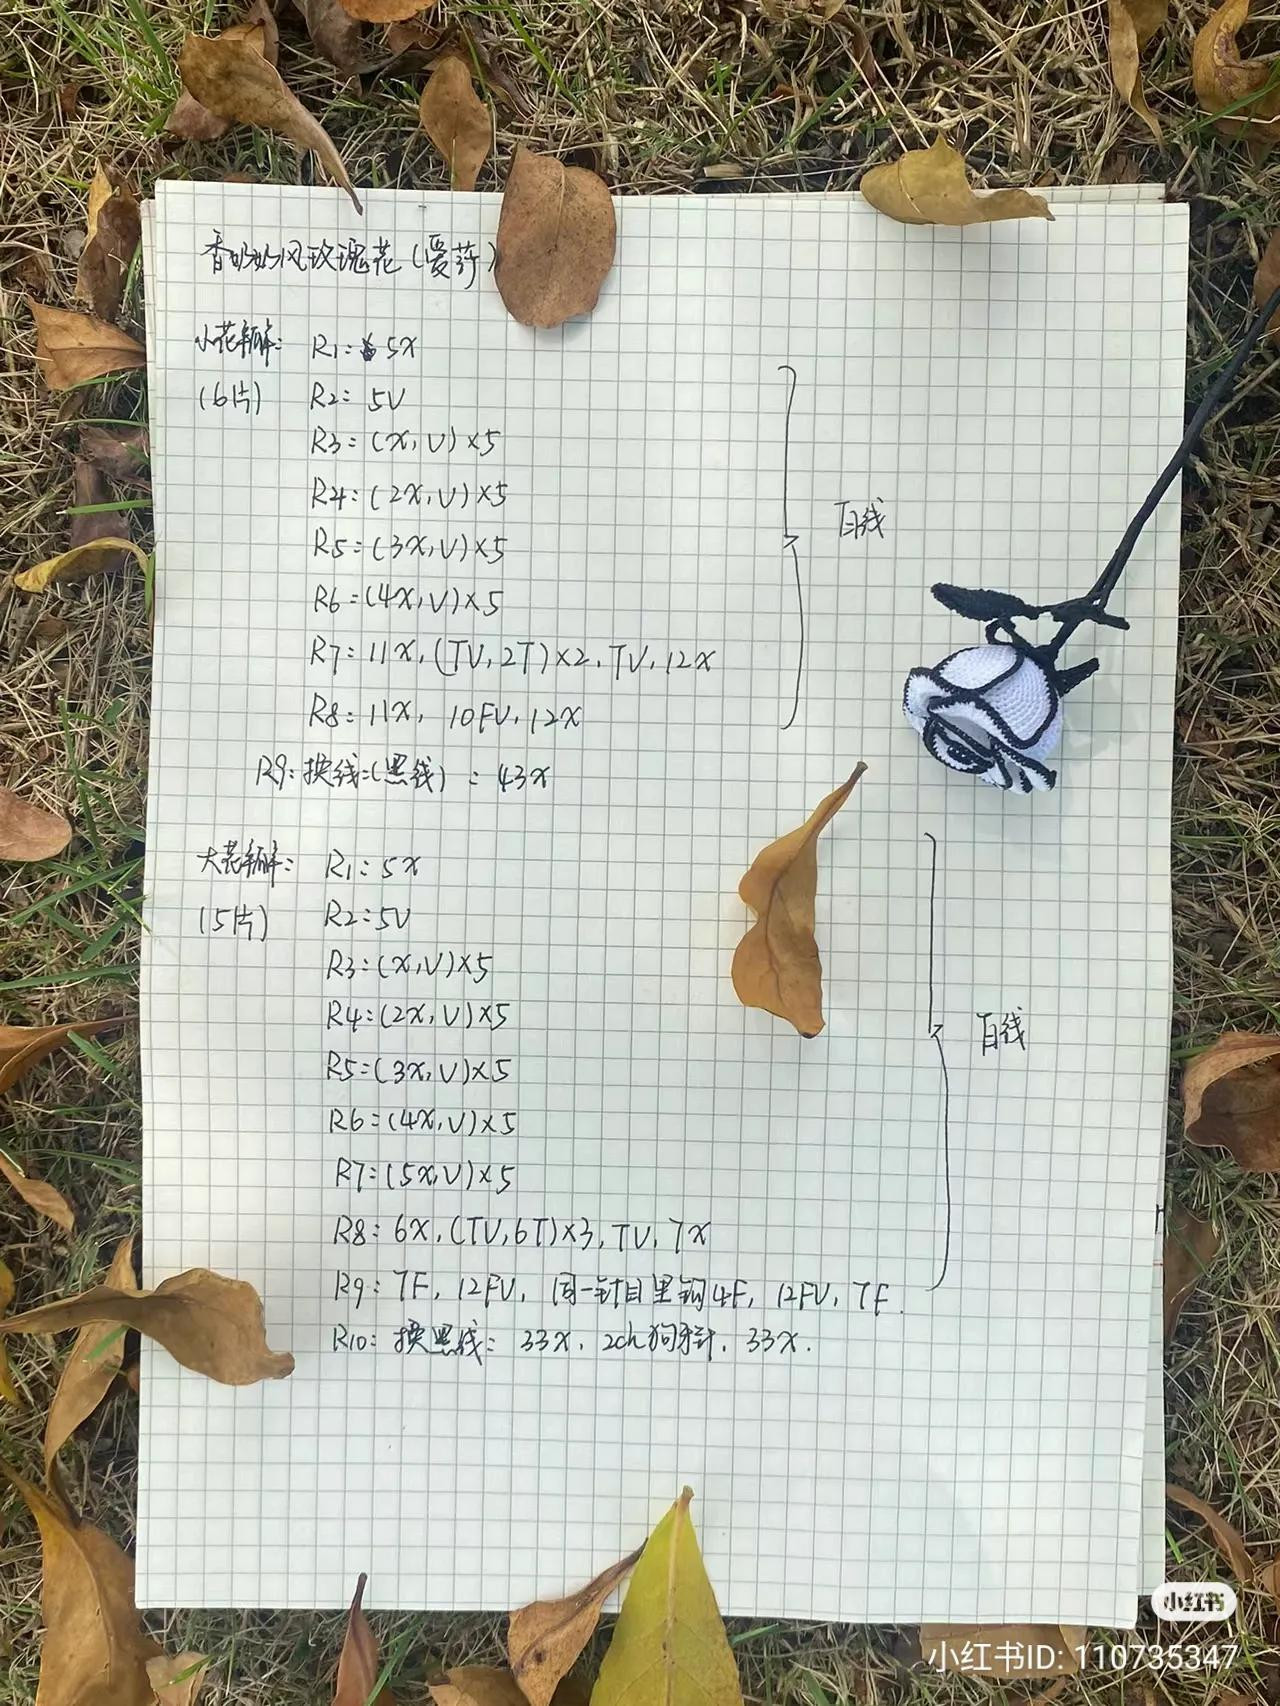 香奶奶风玫瑰花(爱莎)
小花瓣: R1: 5X
(6片) R2: 5V
R3: (X, V)×5
R4: (2X, V)×5
R5: (3X, V)×5
R6: (4X, V)×5
R7: 11X, (TV, 2T)×2, TV, 12X
R8: 11X, 10FV, 12X
白线
R9: 换线:(黑线): 43X
大花瓣: R1: 5X
(5片) R2: 5V
R3: (X, V)×5
R4: (2X, V)×5
R5: (3X, V)×5
R6: (4X, V)×5
R7: (5X, V)×5
R8: 6X, (TV, 6T)×3, TV, 7X
R9: 7F, 12FV, 同一针目里钩4F, 12FV, 7F.
白线
R10: 换黑线: 33X, 2ch狗牙针, 33X.
小红书
小红书ID: 110735347